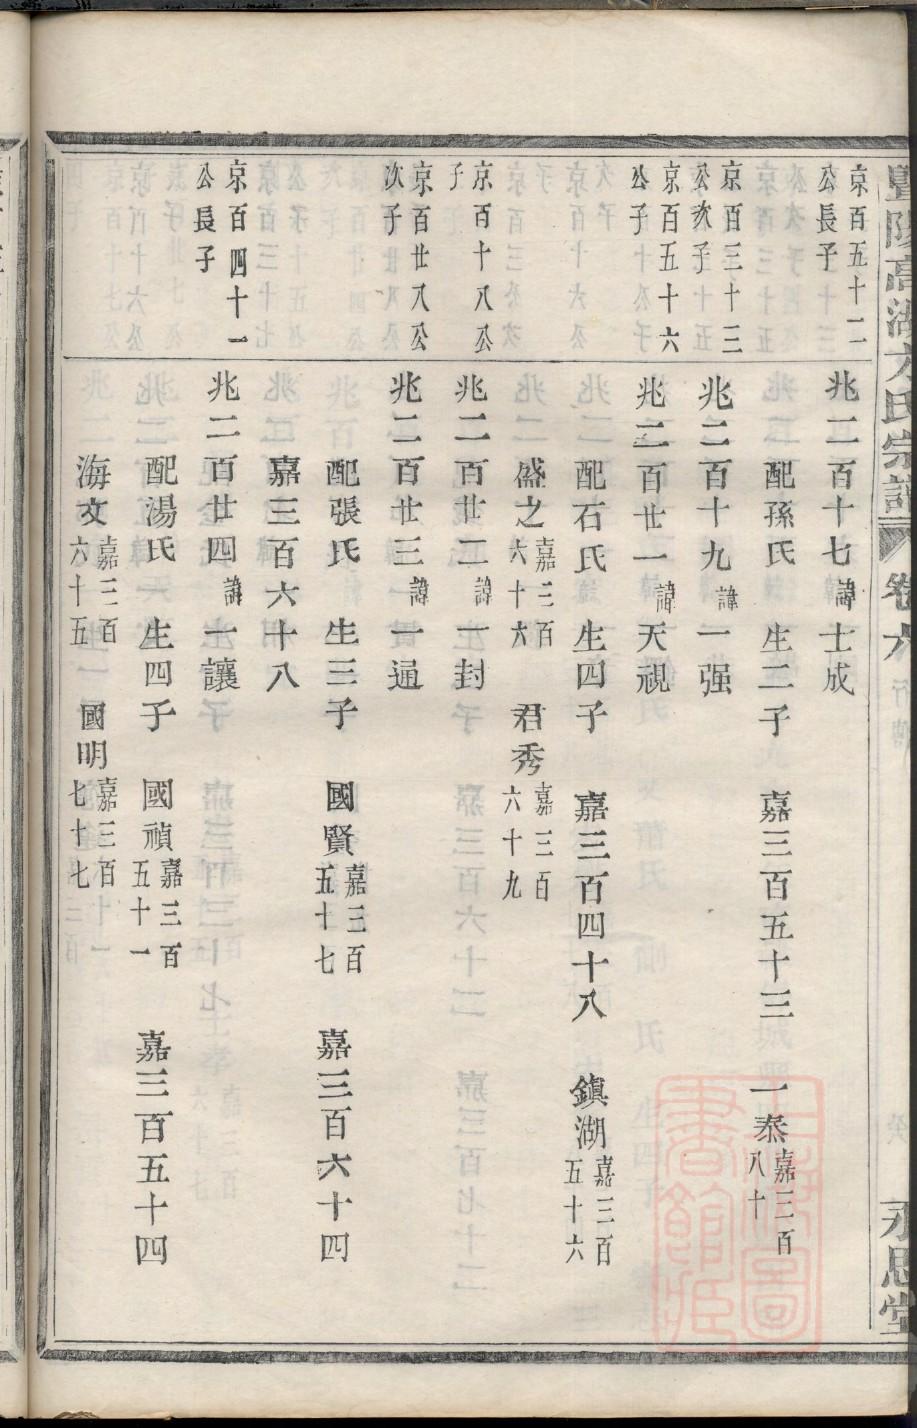 暨陽高湖方氏宗譜 卷六 行傳 永思堂
京百五十二公長子
兆二百十七諱士成
配孫氏 生二子 嘉三百五十三 一泰嘉三百八十
京百三十三公次子
兆二百十九諱一强
京百五十六公子
兆二百廿一諱天視
配石氏 生四子 嘉三百四十八 鎮湖嘉三百五十六
盛之嘉三百六十六 君秀嘉三百六十九
京百十八公子
兆二百廿二諱一封
京百廿八公次子
兆二百廿三諱一通
配張氏 生三子 國賢嘉三百五十七 嘉三百六十四
嘉三百六十八
京百四十一公長子
兆二百廿四諱一讓
配湯氏 生四子 國禎嘉三百五十一 嘉三百五十四
海文嘉三百六十五 國明嘉三百七十七